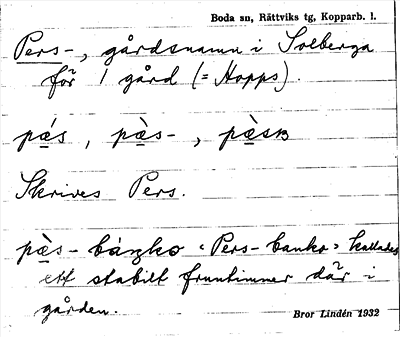 Boda sn, Rättviks tg, Kopparb. l.
Pers-, gårdsnamn i Solberga
för 1 gård (= Hopps).
pɛ́s, pɛ̀s-, pɛ̀sɴ
Skrives Pers.
pɛ̀s-báŋko "Pers-banko" kallades
ett stabilt fruntimmer där i
gården.
Bror Lindén 1932